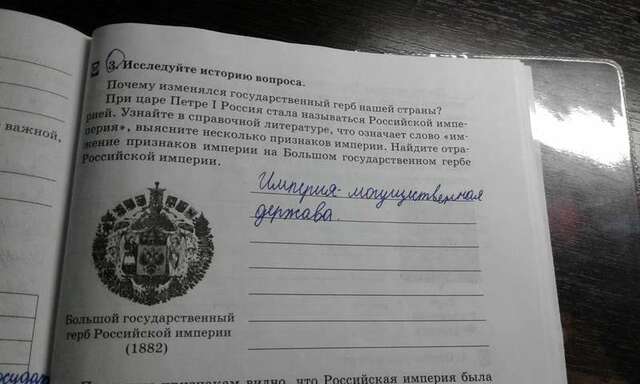 3. Исследуйте историю вопроса.
Почему изменялся государственный герб нашей страны?
При царе Петре I Россия стала называться Российской импе-
рией. Узнайте в справочной литературе, что означает слово «им-
перия», выясните несколько признаков империи. Найдите отра-
жение признаков империи на Большом государственном гербе
Российской империи.
важной,
Империя- могущественная
держава.
Большой государственный
герб Российской империи
(1882)
признакам видно, что Российская империя была